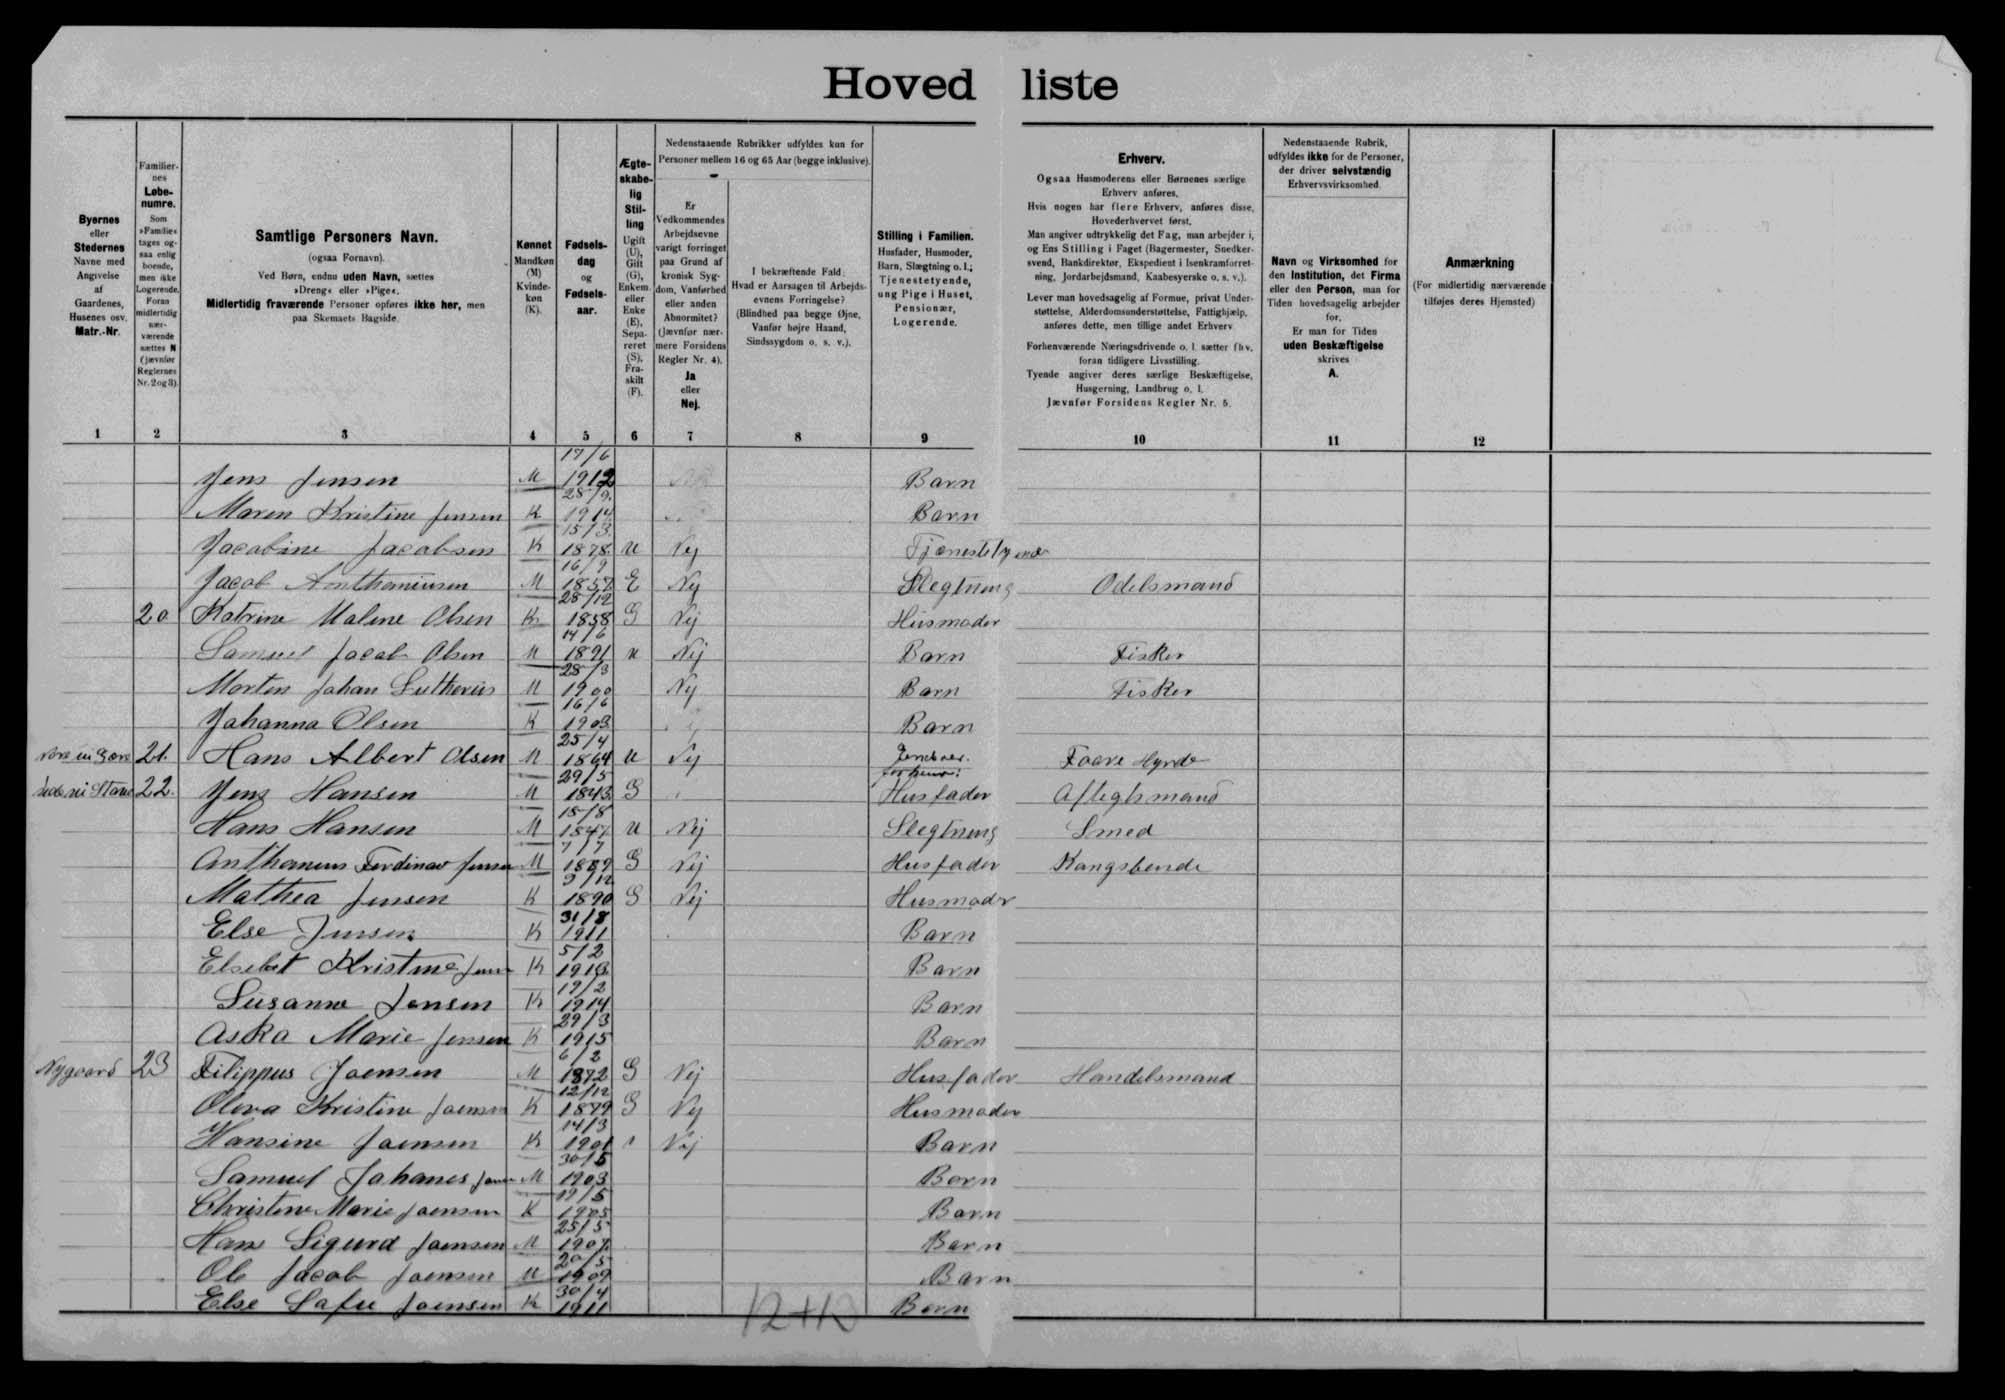 Hoved liste
Byernes
eller
Stedernes
Navne med
Angivelse
af
Gaardenes,
Husenes osv.
Matr.-Nr.
Familier-
nes
Løbe-
numre.
Som
»Familie«
tages og-
saa enlig
boende,
men ikke
Logerende.
Foran
midlertidig
nær-
værende
sættes N
(jævnfør
Reglernes
Nr. 2 og 3).
Samtlige Personers Navn.
(ogsaa Fornavn).
Ved Børn, endnu uden Navn, sættes
»Dreng« eller »Pige«.
Midlertidig fraværende Personer opføres ikke her, men
paa Skemaets Bagside.
Kønnet
Mandkøn
(M)
Kvinde-
køn
(K).
Fødsels-
dag
og
Fødsels-
aar.
Ægte-
skabe-
lig
Stil-
ling
Ugift
(U),
Gift
(G),
Enkem.
eller
Enke
(E),
Sepa-
reret
(S),
Fra-
skilt
(F).
Nedenstaaende Rubrikker udfyldes kun for
Personer mellem 16 og 65 Aar (begge inklusive).
Er
Vedkommendes
Arbejdsevne
varigt forringet
paa Grund af
kronisk Syg-
dom, Vanførhed
eller anden
Abnormitet?
(Jævnfør nær-
mere Forsidens
Regler Nr. 4).
Ja
eller
Nej.
I bekræftende Fald:
Hvad er Aarsagen til Arbejds-
evnens Forringelse?
(Blindhed paa begge Øjne,
Vanfør højre Haand,
Sindssygdom o. s. v.).
Stilling i Familien.
Husfader, Husmoder,
Barn, Slægtning o. l.;
Tjenestetyende,
ung Pige i Huset,
Pensionær,
Logerende.
Erhverv.
Ogsaa Husmoderens eller Børnenes særlige
Erhverv anføres.
Hvis nogen har flere Erhverv, anføres disse,
Hovederhvervet først.
Man angiver udtrykkelig det Fag, man arbejder i,
og Ens Stilling i Faget (Bagermester, Snedker-
svend, Bankdirektør, Ekspedient i Isenkramforret-
ning, Jordarbejdsmand, Kaabesyerske o. s. v.).
Lever man hovedsagelig af Formue, privat Under-
støttelse, Alderdomsunderstøttelse, Fattighjælp,
anføres dette, men tillige andet Erhverv
Forhenværende Næringsdrivende o. l. sætter fhv.
foran tidligere Livsstilling.
Tyende angiver deres særlige Beskæftigelse,
Husgerning, Landbrug o. l.
Jævnfør Forsidens Regler Nr. 5.
Nedenstaaende Rubrik,
udfyldes ikke for de Personer,
der driver selvstændig
Erhvervsvirksomhed.
Navn og Virksomhed for
den Institution, det Firma
eller den Person, man for
Tiden hovedsagelig arbejder
for.
Er man for Tiden
uden Beskæftigelse
skrives
A.
Anmærkning
(For midlertidig nærværende
tilføjes deres Hjemsted)
1 2 3 4 5 6 7 8 9 10 11 12
Jens Jensen M 17/6 1912 Barn
Maren Kristine Jensen K 28/9. 1914 Barn
Jacobine Jacobsen K 15/3. 1878. U Nej Tjænestetyende
Jacob Anthoniusen M 16/9 1857 E Nej Slegtning Odelsmand
20 Katrine Malene Olsen K 28/12 1858 G Nej Husmoder
Samuel Jacob Olsen M 14/6 1891 U Nej Barn Fisker
Morten Johan Lutherus M 28/3 1900 Nej Barn Fisker
Johanna Olsen K 16/6 1903 Barn
21. Hans Albert Olsen M 25/4 1864 U Nej Faare Hyrde
22. Jens Hansen M 29/5 1843 G Husfader Aflegtsmand
Hans Hansen M 18/8 1847 U Nej Slegtning Smed
Anthonius Ferdinav Jensen M 7/7 1889 G Nej Husfader Kongsbonde
Mathea Jensen K 9/12 1890 G Nej Husmoder
Else Jensen K 31/8 1911 Barn
Elsebet Kristine Jensen K 5/2 1913 Barn
Susanne Jensen K 19/2 1914 Barn
Aska Marie Jensen K 29/3 1915 Barn
Nygaard 23 Filippus Joensen M 6/2 1872 G Nej Husfader Handelsmand
Oliva Kristine Joensen K 12/12 1879 G Nej Husmoder
Hansine Joensen K 14/3 1901 Nej Barn
Samuel Johanes Joensen M 30/5 1903 Barn
Christine Marie Joensen K 19/5 1905 Barn
Hans Sigurd Joensen M 25/5 1907. Barn
Ole Jacob Joensen M 20/5 1909 Barn
Else Sofie Joensen K 30/4 1911 Barn